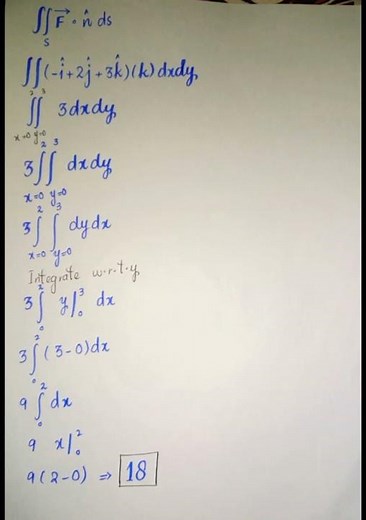 ∬_S F⃗ · n̂ ds
∬(-î+2ĵ+3k̂)(k)dxdy
∫_{x=0}^{2} ∫_{y=0}^{3} 3dxdy
3∫_{x=0}^{2} ∫_{y=0}^{3} dxdy
3∫_{x=0}^{2} ∫_{y=0}^{3} dydx
Integrate w.r.t y
3∫_0^2 y|_0^3 dx
3∫_0^2 (3-0)dx
9∫_0^2 dx
9 x|_0^2
9(2-0) ⇒ 18